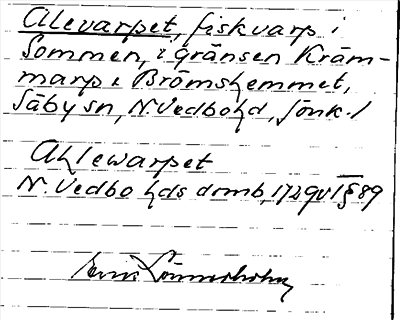 Alevarpet, fiskvarp i
Sommen, i gränsen Kräm-
marp o Brömshemmet,
Säby sn, N. Vedbo hd, Jönk. l
Ahlewarpet
N. Vedbo hds domb, 1729 VT § 89